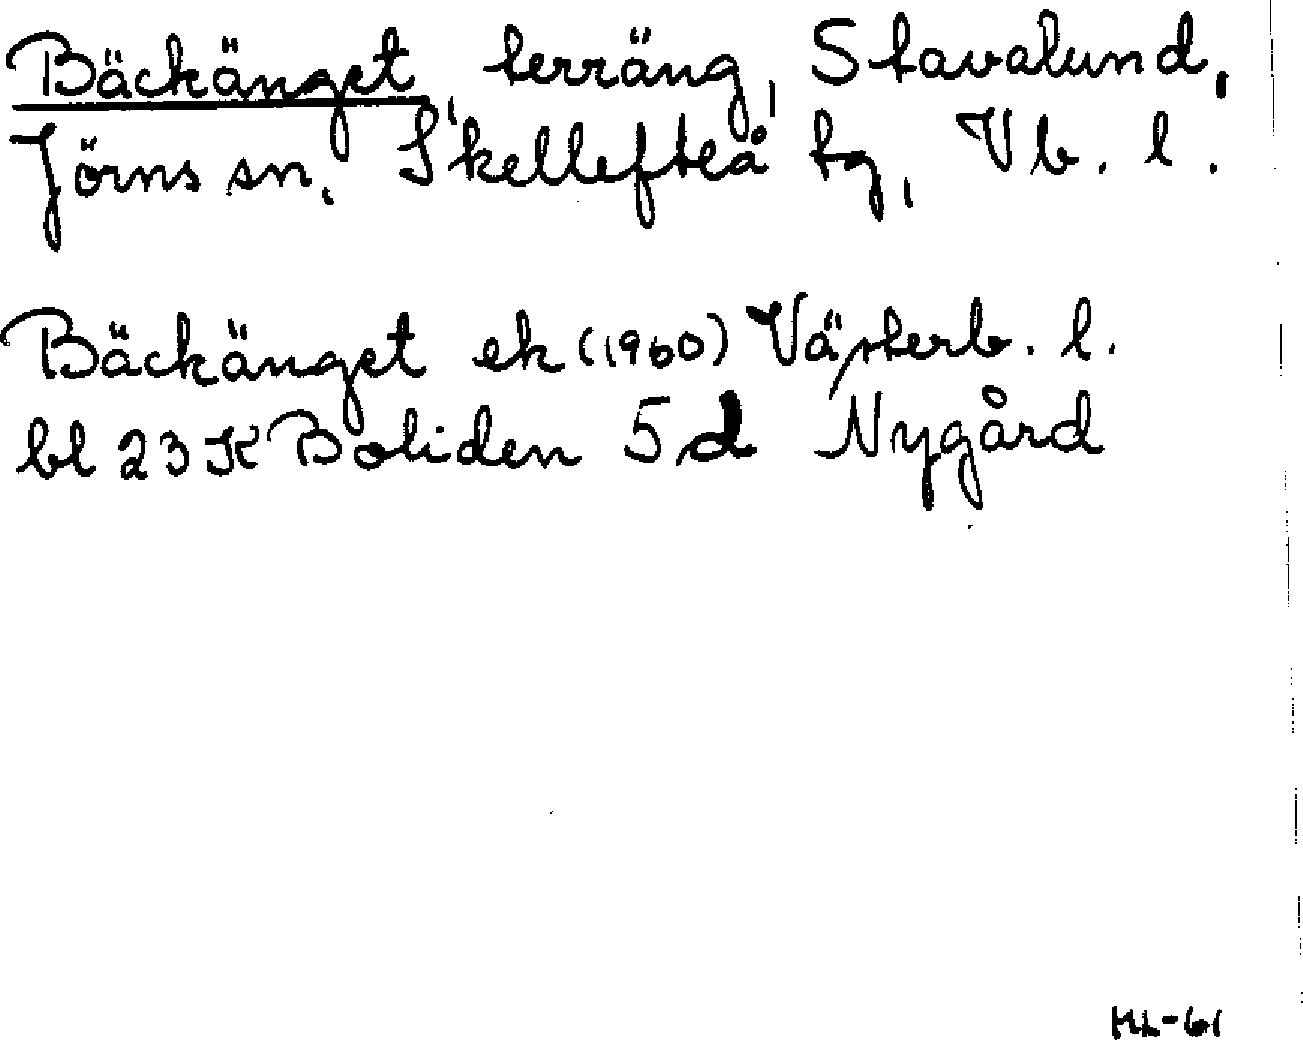 Bäckänget, terräng, Stavalund,
Jörns sn, Skellefteå tg, Vb. l.
Bäckänget ek (1960) Västerb. l.
bl 23 K Boliden 5d Nygård
ML-61